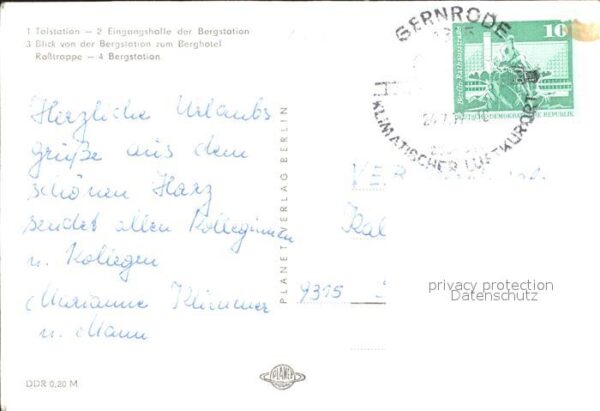 1 Talstation — 2 Eingangshalle der Bergstation
3 Blick von der Bergstation zum Berghotel
Roßtrappe — 4 Bergstation
Herzliche Urlaubs
grüße aus dem
schönen Harz
sendet allen Kolleginnen
u. Kollegen
Marianne Klimmer
u. Mann
DDR 0,20 M
PLANET-VERLAG BERLIN
PLANET
GERNRODE
KLIMATISCHER LUFTKURORT
10
Berlin, Rathausstraße
DEUTSCHE DEMOKRATISCHE REPUBLIK
VEB
Kal
9315
privacy protection
Datenschutz